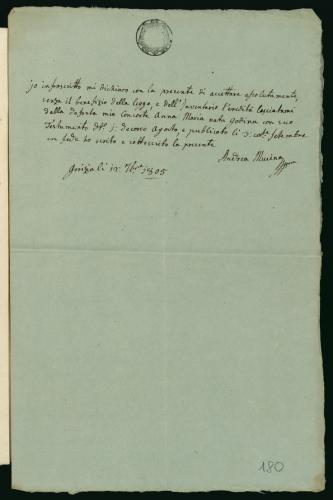 Io infrascritto mi dichiaro con la presente di accettare assolutamente,
senza il benefizio della legge, e dell'Inventario l'eredità lasciatami
dalla defunta mia consorte Anna Maria nata Godina con suo
Testamento 1: decorso Agosto, e publicato li 3: Settembre
in fede ho scritto e sottoscritto la presente
Andrea
Gorizia li 7bre 1805
180